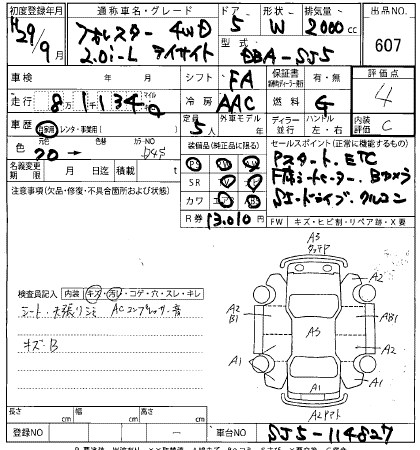 初度登録年月 通称車名・グレード ドア 形状 排気量 出品NO.
H29/9月 フォレスター 4WD 5 W 2000cc 607
2.0i-L アイサイト 型式 DBA-SJ5
車検 年 月 シフト FA 保証書 有・無 評価点
走行 8万1千134 マイル 冷房 AAC 燃料 G 4
車歴 自家用 レンタ・事業用( ) 定員 5人 外車モデル 年 ディーラー 並行 ハンドル 左・右 内装 C
色 元色 70 → 色替 カラーNO D4S 装備品(純正品に限る) セールスポイント(正常に機能するもの)
名義変更期限 月 日迄 積載 t PS Pスタート ETC
注意事項(欠品・修復・不具合箇所および状態) SR TV F席シートヒーター Bカメラ
カワ エア SIドライブ クルコン
R券 13,010円 FW キズ・ヒビ割・リペア跡・X要
検査員記入 内装 キズ・汚れ・コゲ・穴・スレ・キレ
シート・天張りシミ ACコンプレッサー音
キズB
A3
A2
A2
B1
AB1
A3
A1
A2
A1
A1
長さ cm 幅 cm 高さ cm
登録NO ー 車台NO SJ5-114827